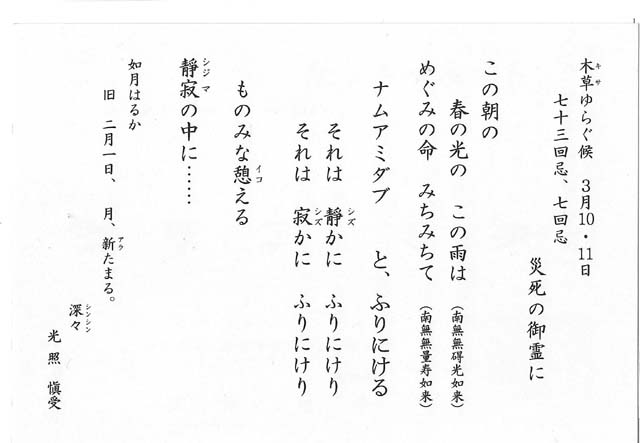 木草ゆらぐ候　３月10・11日
七十三回忌、七回忌
災死の御霊に
この朝の
春の光の　この雨は（南無無碍光如来）
めぐみの命　みちみちて（南無無量寿如来）
ナムアミダブ　と、ふりにける
それは　靜かに　ふりにけり
それは　寂かに　ふりにけり
ものみな憩える
靜寂の中に……
如月はるか
旧　二月一日、　月、新たまる。
深々
光照　愼受